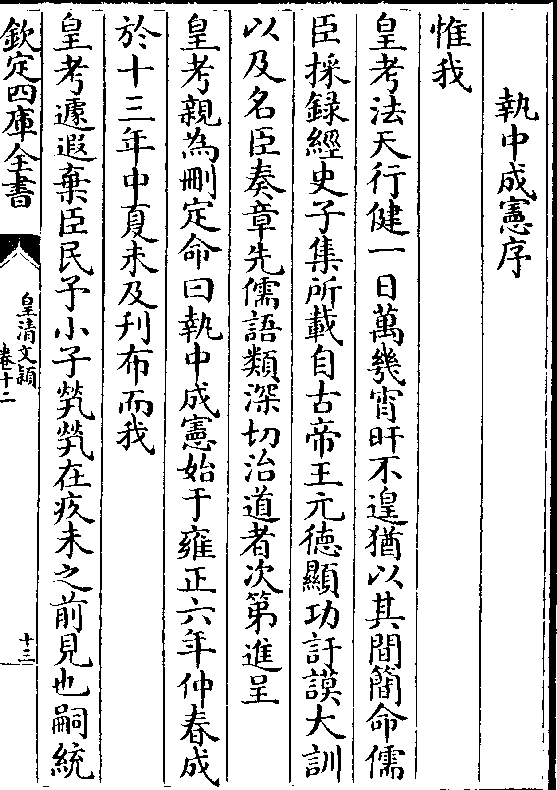 執中成憲序
惟我
皇考法天行健一日萬幾宵旰不遑猶以其間簡命儒
臣採録經史子集所載自古帝王元德顯功訏謨大訓
以及名臣奏章先儒語類深切治道者次第進呈
皇考親為刪定命曰執中成憲始于雍正六年仲春成
於十三年中夏未及刋布而我
皇考遽遐棄臣民予小子煢煢在疚未之前見也嗣統
欽定四庫全書
皇清文穎
卷十二
十三